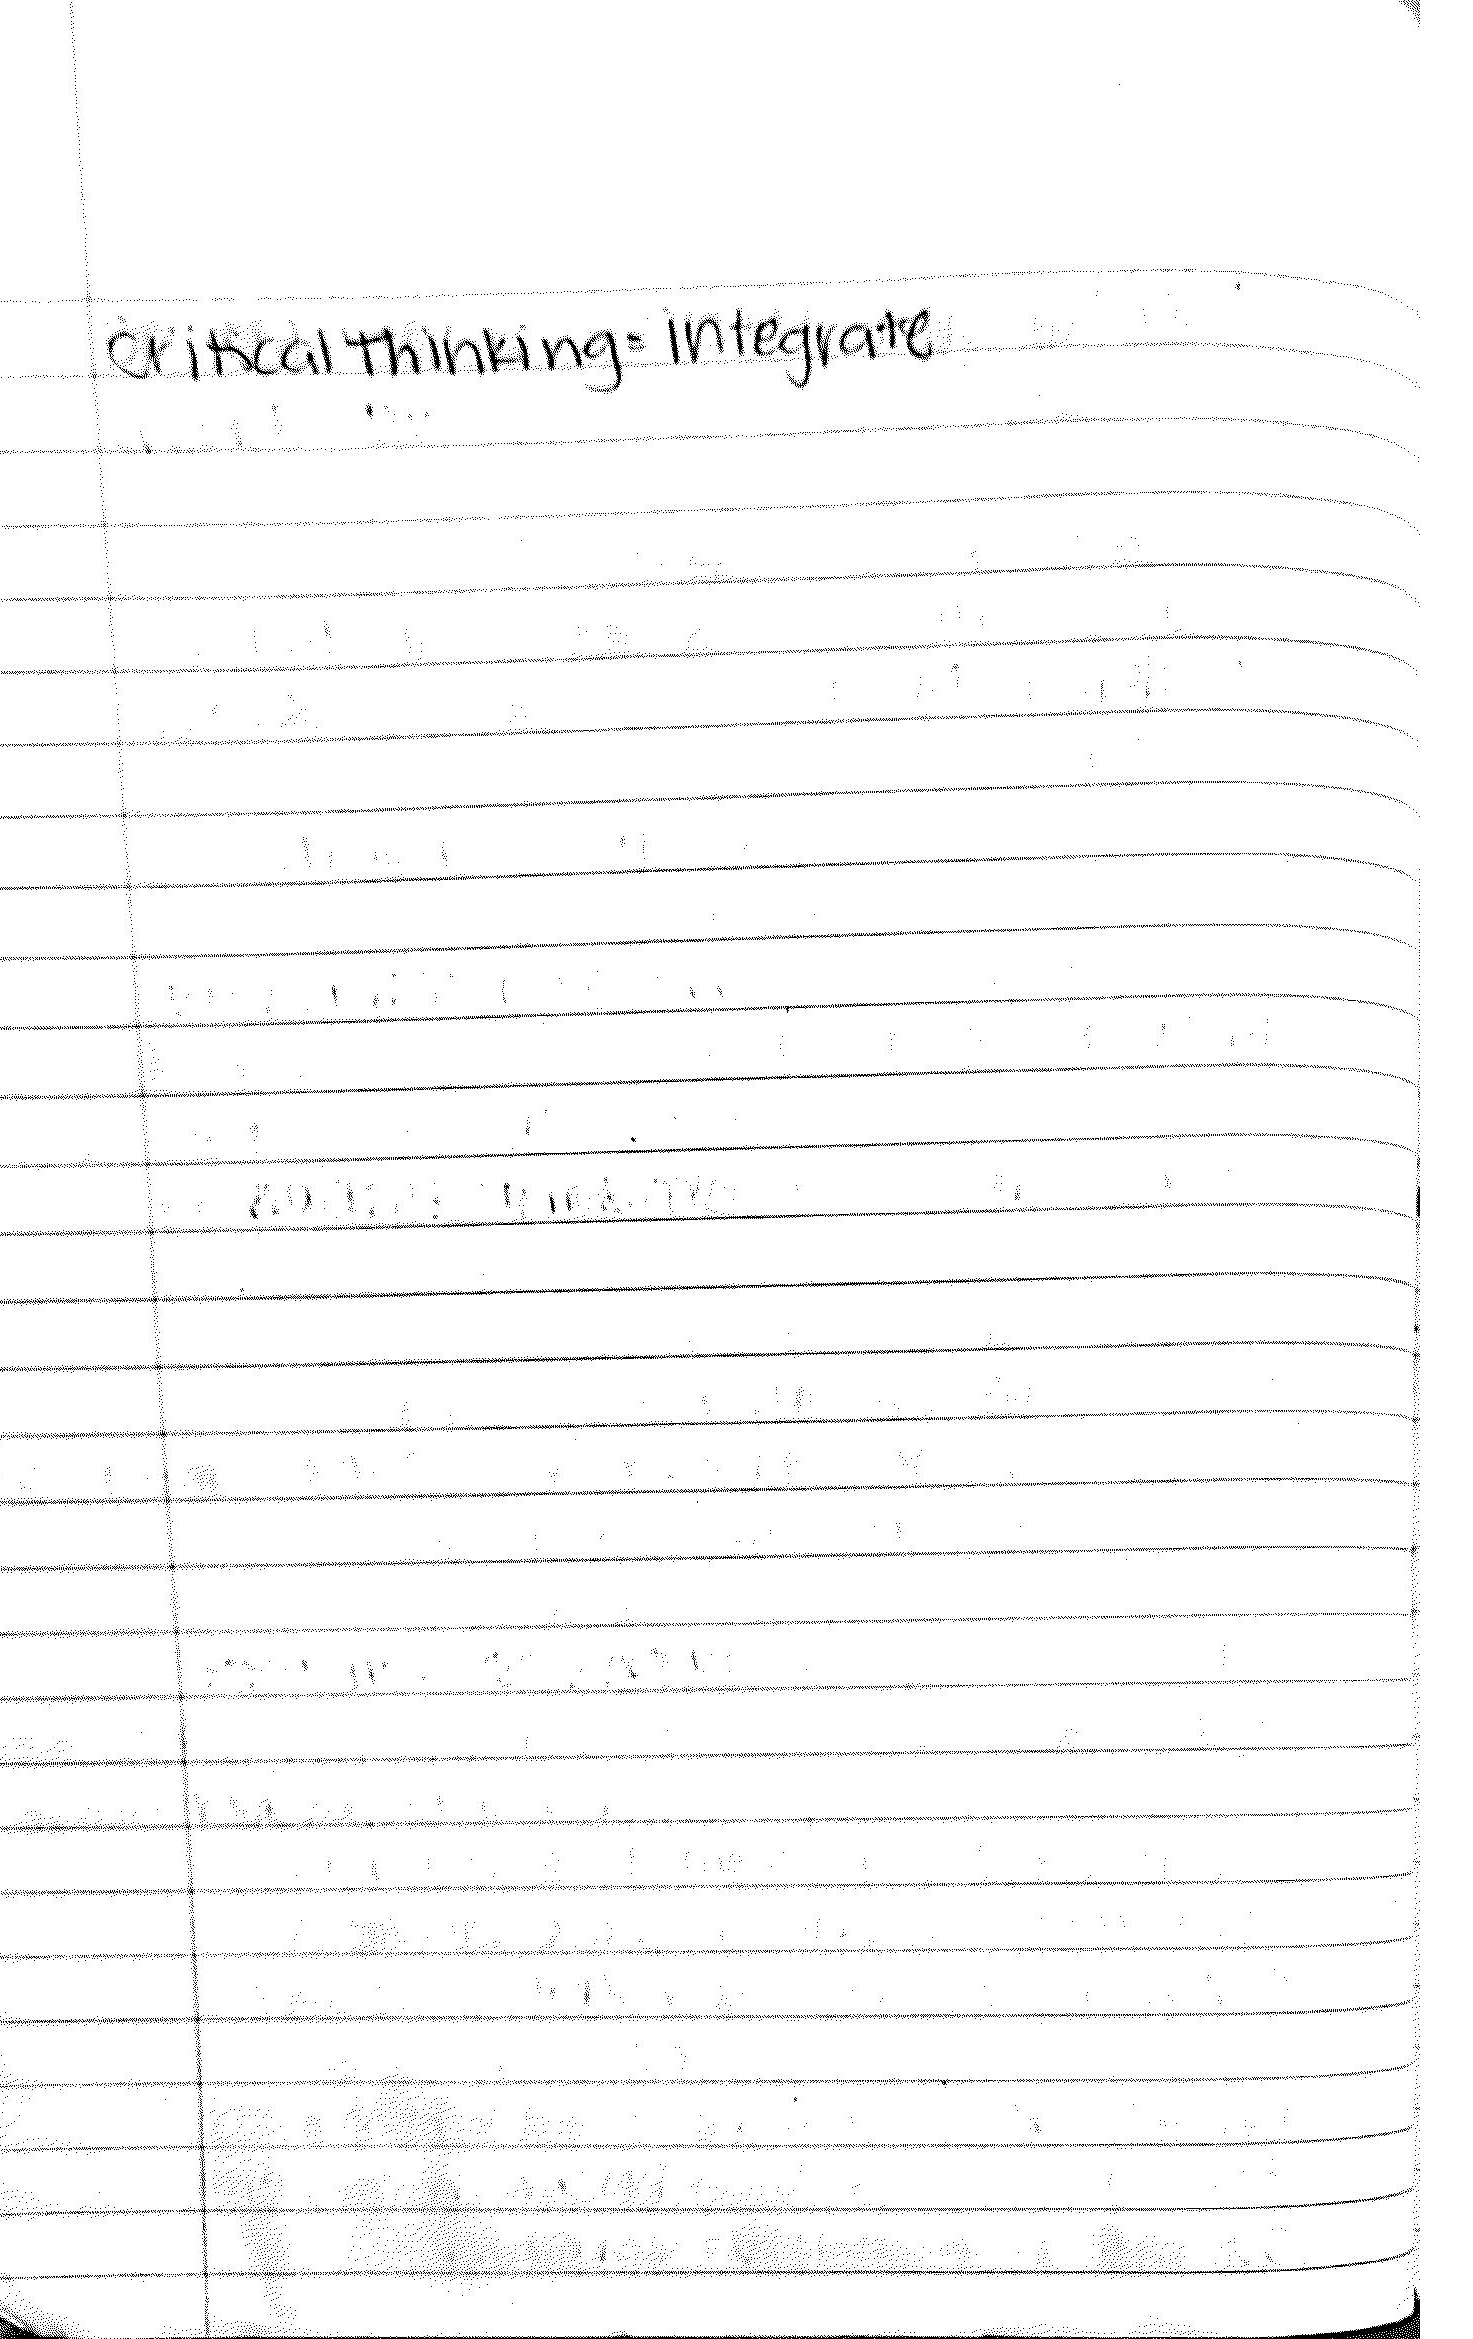 Critical thinking = integrate